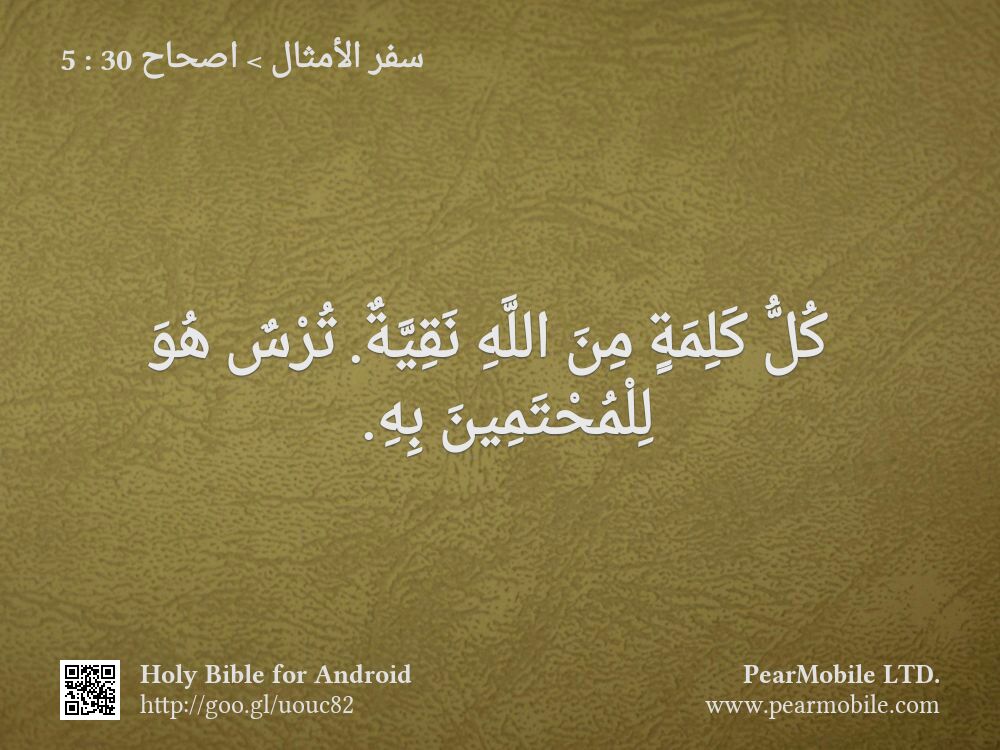 سفر الأمثال > اصحاح 30 : 5
كُلُّ كَلِمَةٍ مِنَ اللَّهِ نَقِيَّةٌ. تُرْسٌ هُوَ
لِلْمُحْتَمِينَ بِهِ.
Holy Bible for Android
http://goo.gl/uouc82
PearMobile LTD.
www.pearmobile.com